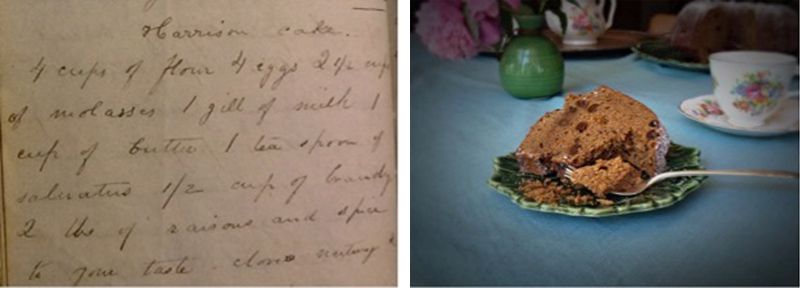 Harrison cake.
4 cups of flour 4 eggs 2 1/2 cup
of molasses 1 gill of milk 1
cup of butter 1 tea spoon of
saluratus 1/2 cup of brandy
2 lbs of raisons and spice
to your taste. cloves nutmeg